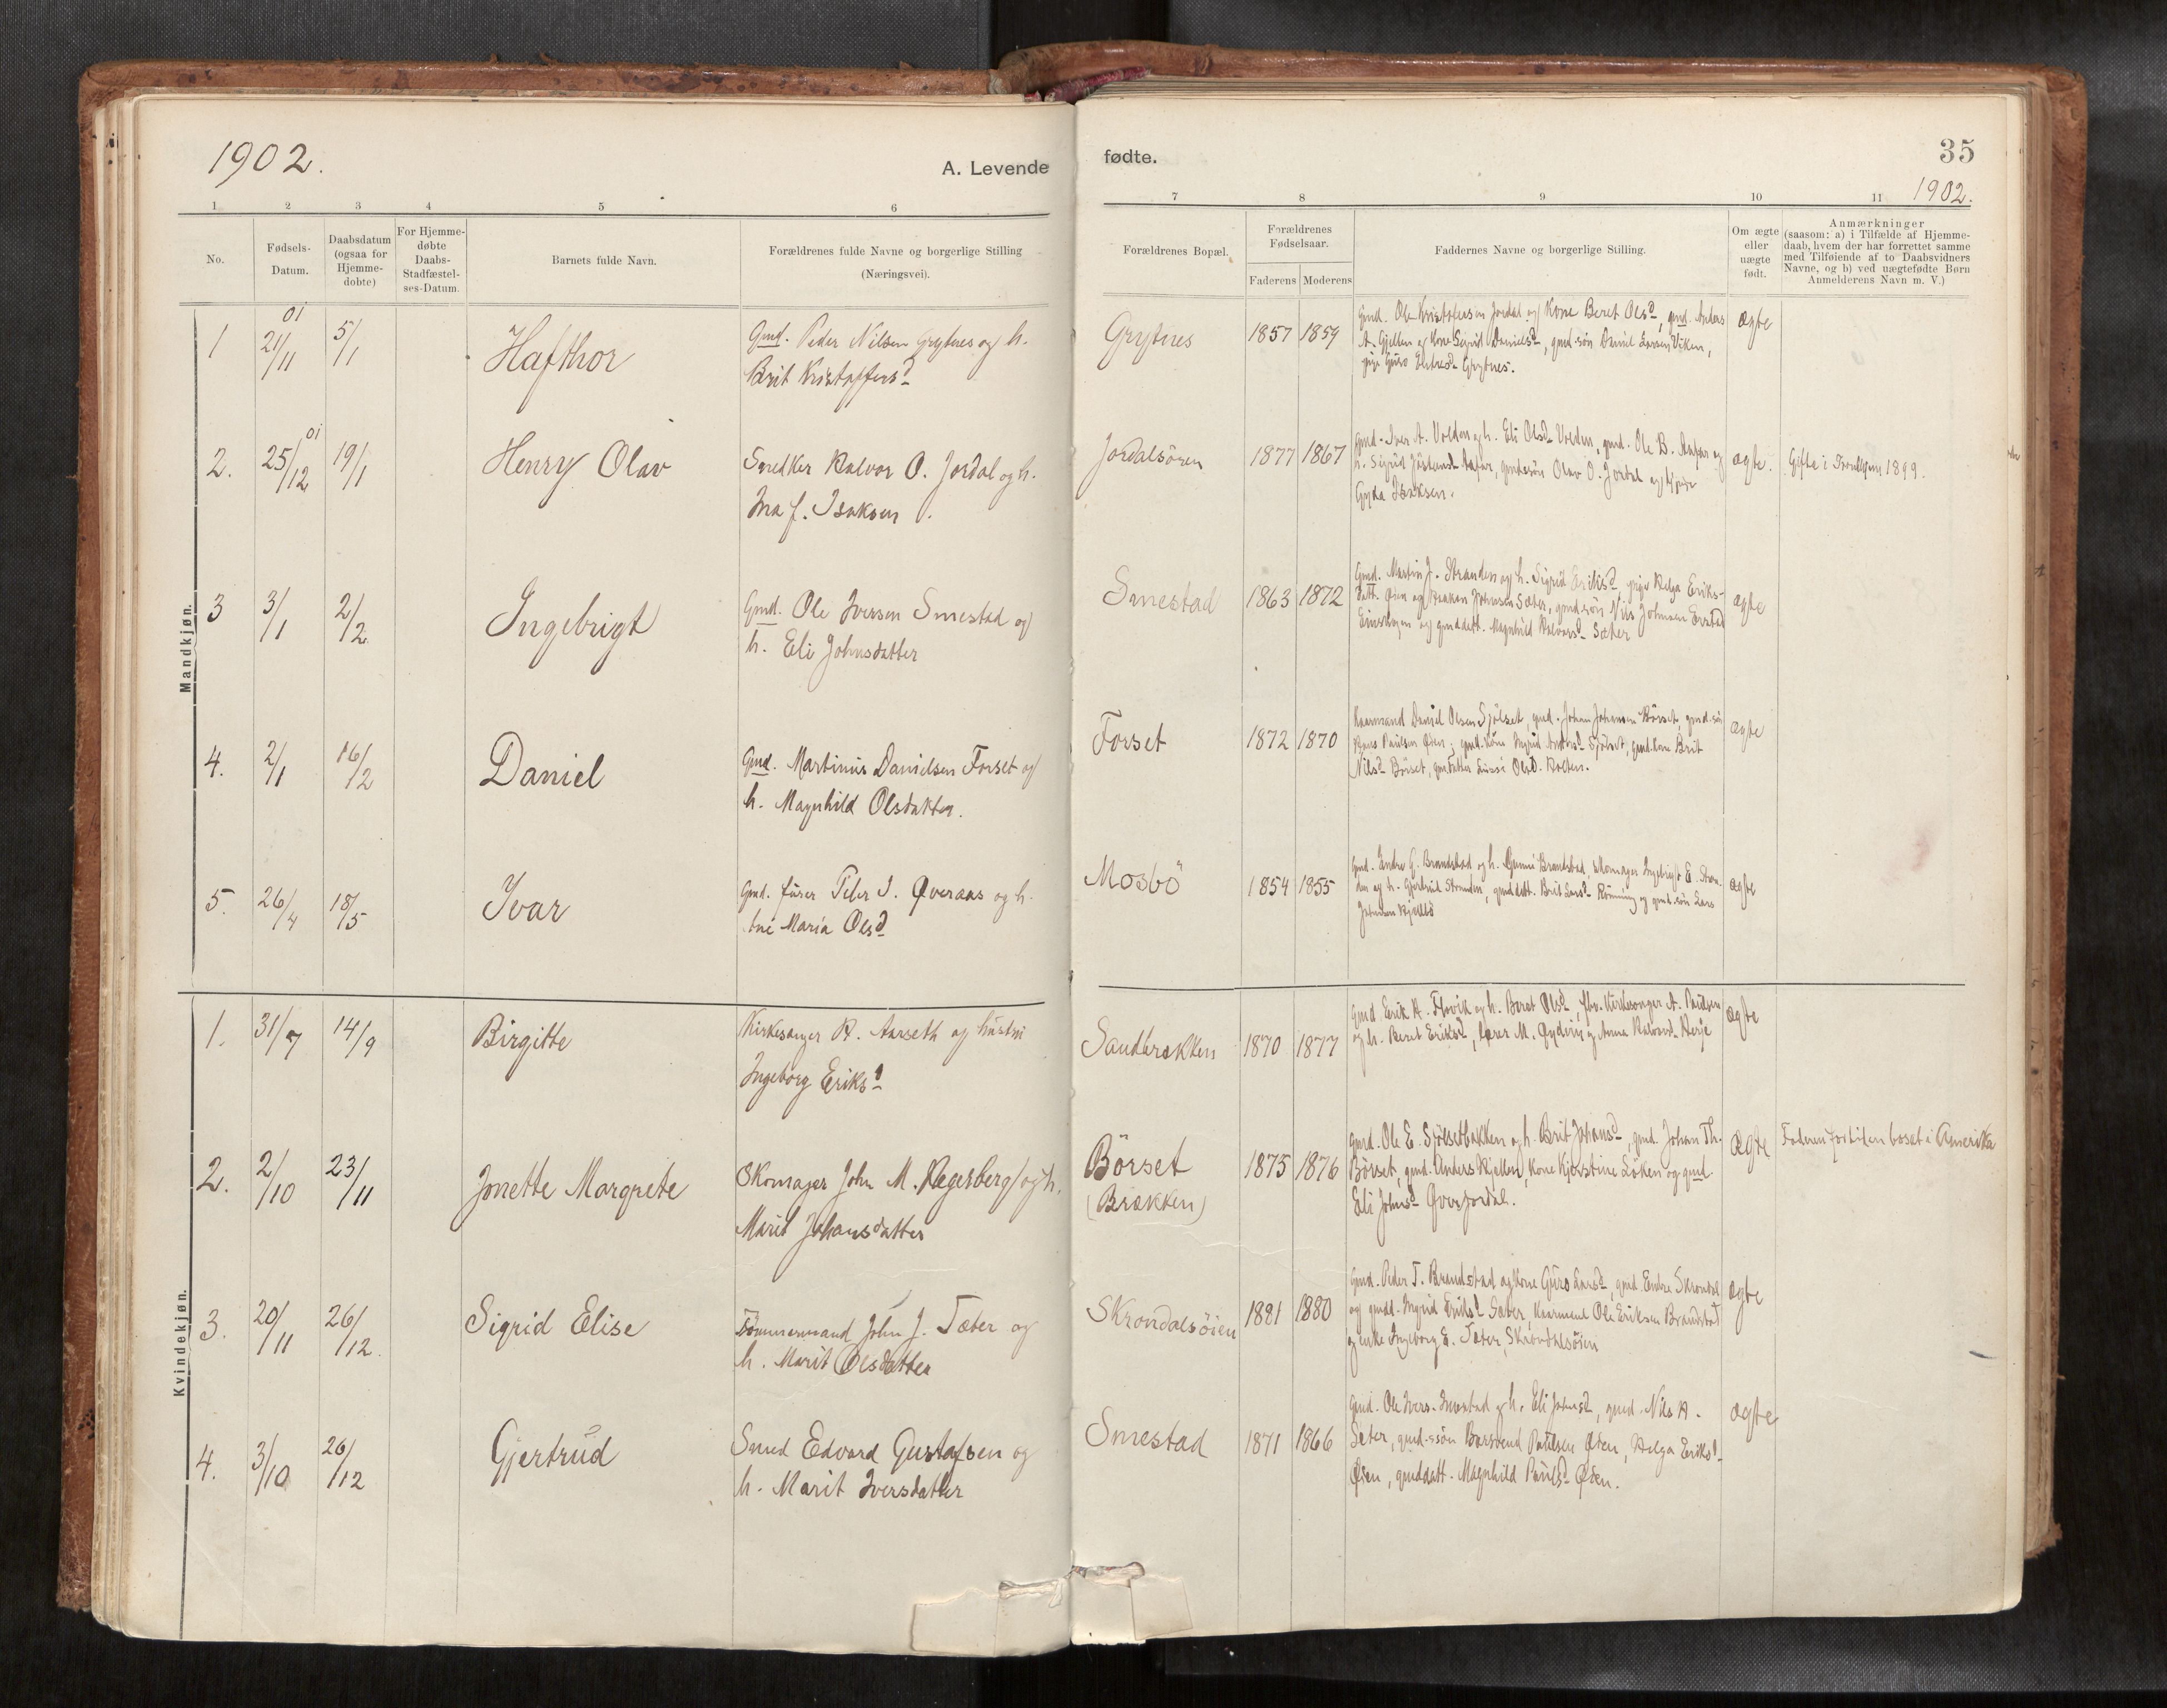 1902.
A. Levende
fødte.
35
1902.
1 2 3 4 5 6
7 8 9 10 11
No.
Fødsels-
Datum.
Daabsdatum
(ogsaa for
Hjemme-
dobte)
For Hjemme-
døbte
Daabs-
Stadfæstel-
ses-Datum.
Barnets fulde Navn.
Forældrenes fulde Navne og borgerlige Stilling
(Næringsvei).
Forældrenes Bopæl.
Forældrenes
Fødselsaar.
Faderens Moderens
Faddernes Navne og borgerlige Stilling.
Om ægte
eller
uægte
født.
Anmærkninger
(saasom: a) i Tilfælde af Hjemme-
daab, hvem der har forrettet samme
med Tilføiende af to Daabsvidners
Navne, og b) ved uægtefødte Børn
Anmelderens Navn m. V.)
Mandkjøn.
1
01
21/11
5/1
Hafthor
Gmd. Peder Nilsen Grytnes og h.
Brit Kristoffersd
Grytnes
1857 1859
Gmd. Ole Kristofersen Jordal og Kone Beret Olsd, gmd. Anders
A. Gjellen og Kone Sigrid Danielsd, gmd.søn Daniel Larsen Viken,
pige Guro Grytnes.
ægte
2.
01
25/12
19/1
Henry Olav
Snedker Halvor O. Jordal og h.
Ina f. Isaksen.
Jordalsören
1877 1867
gmd. Iver A. Volden og h. Eli Olsd Volden, gmd. Ole B. og
h. Sigrid gmdssön Olav O. Jordal og
Gyda Isaksen.
ægte.
Gifte i Trondhjem 1899.
3
3/1
2/2
Ingebrigt
Gmd. Ole Iversen Smestad og
h. Eli Johnsdatter
Smestad
1863 1872
Gmd. Martin J. Stranden og h. Sigrid pige Helga Eriks-
datt. Øien og Haakon Johnsen Sæter, gmd.søn Nils Johnsen
og gmddatt. Magnhild Halvorsd Sæter
ægte
4.
2/1
16/2
Daniel
Gmd. Martinus Danielsen Forset og
h. Magnhild Olsdatter.
Forset
1872 1870
Kaarmand Daniel Olsen Sjölset, gmd. Johan Johansen Börset, gmd.søn
Paulsen Øien, gmd.kone Ingrid Sjölset, gmd.kone Brit
Nilsd Börset, Olsd.
ægte
5.
26/4
18/5
Ivar
Gmd. furer Peter I. Øveraas og h.
Ane Maria Olsd
Mosbö
1854 1855
Gmd. Endre G. Brandstad og h. Gunni Brandstad, skomager Ingebrigt E. Stran-
den og h. Gjertrud Stranden, gmddatt. Brit Larsd Rönning og gmd.søn Lars
ægte
Kvindekjøn.
1.
31/7
14/9
Birgitte
Kirkesanger H. Aarseth og hustru
Ingeborg Eriksd
Sandbrækken
1870 1877
Gmd. Erik H. Flovik og h. Beret Olsd, fhv. Kirkesanger A. Paulsen
og h. Beret Eriksd, lærer M. og Anna Halvorsd
ægte
2.
2/10
23/11
Jonette Margrete
Skomager John M. Hegerberg og h.
Marit Johansdatter
Börset
(Brækken)
1875 1876
Gmd. Ole E. Sjölsetbakken og h. Brit Johansd, gmd. Johan Th.
Börset, gmd. Anders Kjellen, kone Kjerstine Löken og gmd
Eli Johnsd Øverjordal.
ægte
Faderen for tiden boset i Amerika
3.
20/11
26/12.
Sigrid Elise
Tömmermand John J. Sæter og
h. Marit Olsdatter
Skrondalsöien
1881 1880
Gmd. Peder T. Brandstad og Kone Guro Larsd, gmd. Endre Skrondal
og gmdd. Ingrid Eriksd Sæter, Kaarmand Ole Eriksen Brandstad
og enke Ingeborg E. Sæter, Skrondalsöien
ægte
4.
3/10
26/12
Gjertrud
Smed Edvard Gustafsen og
h. Marit Iversdatter
Smestad
1871 1866
Gmd. Ole Ivers. Smestad og h. Eli Johnsd, gmd. Nils H.
Sæter, gmd.ssön Paulsen Øien, Helga Eriksd
Øien, gmddatt. Magnhild Paulsd Øien.
ægte